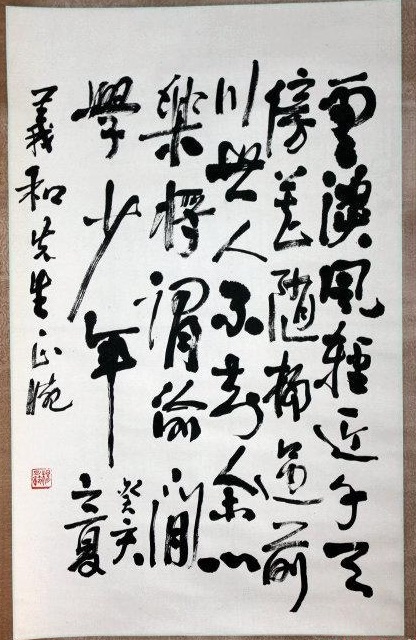 雲淡風輕近午天
傍花隨柳過前
川世人不知余心
樂將謂偷閒
學少年
癸亥
夏
義和先生正腕